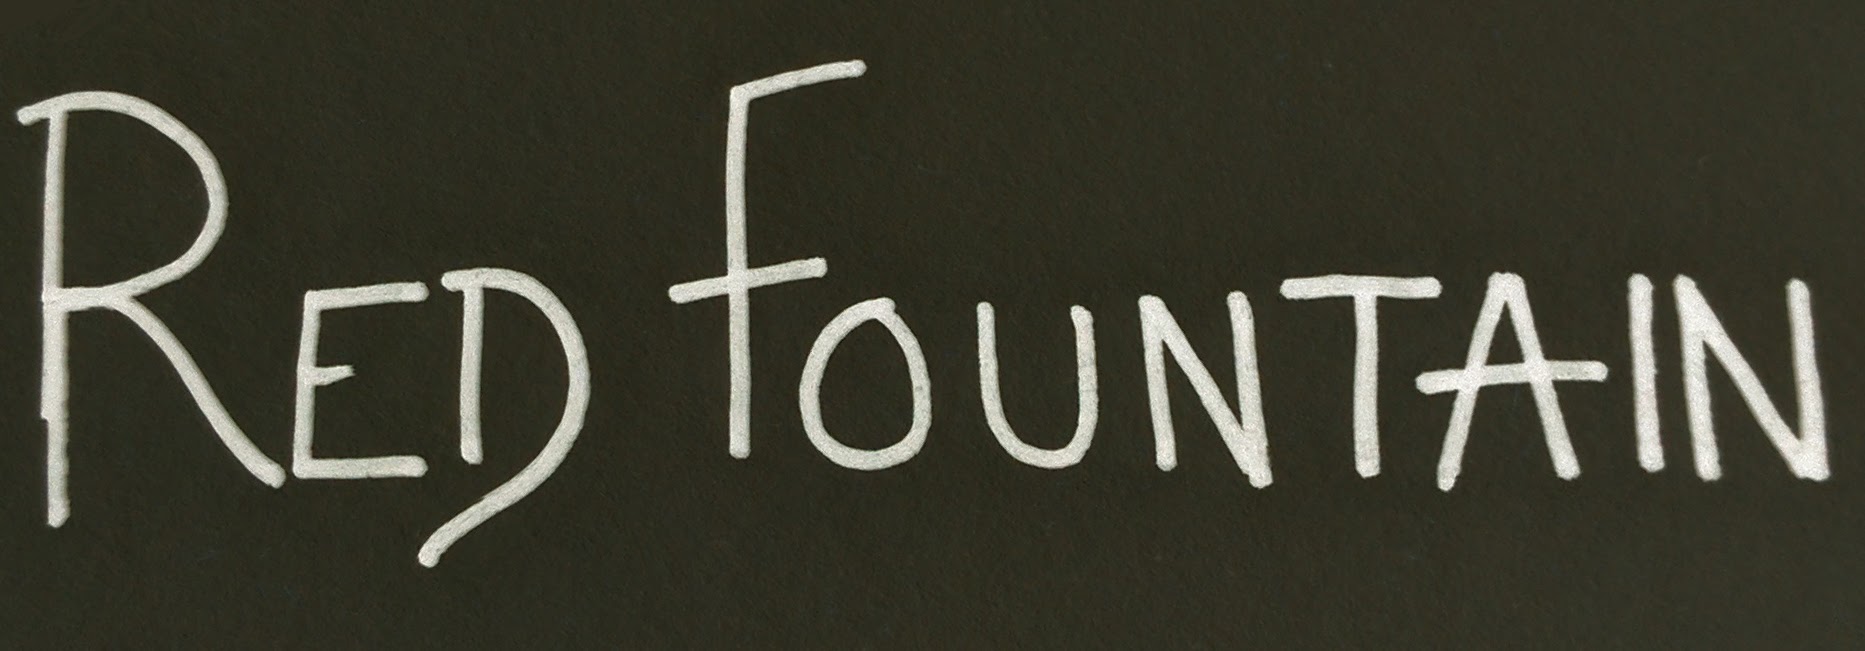 RED FOUNTAIN